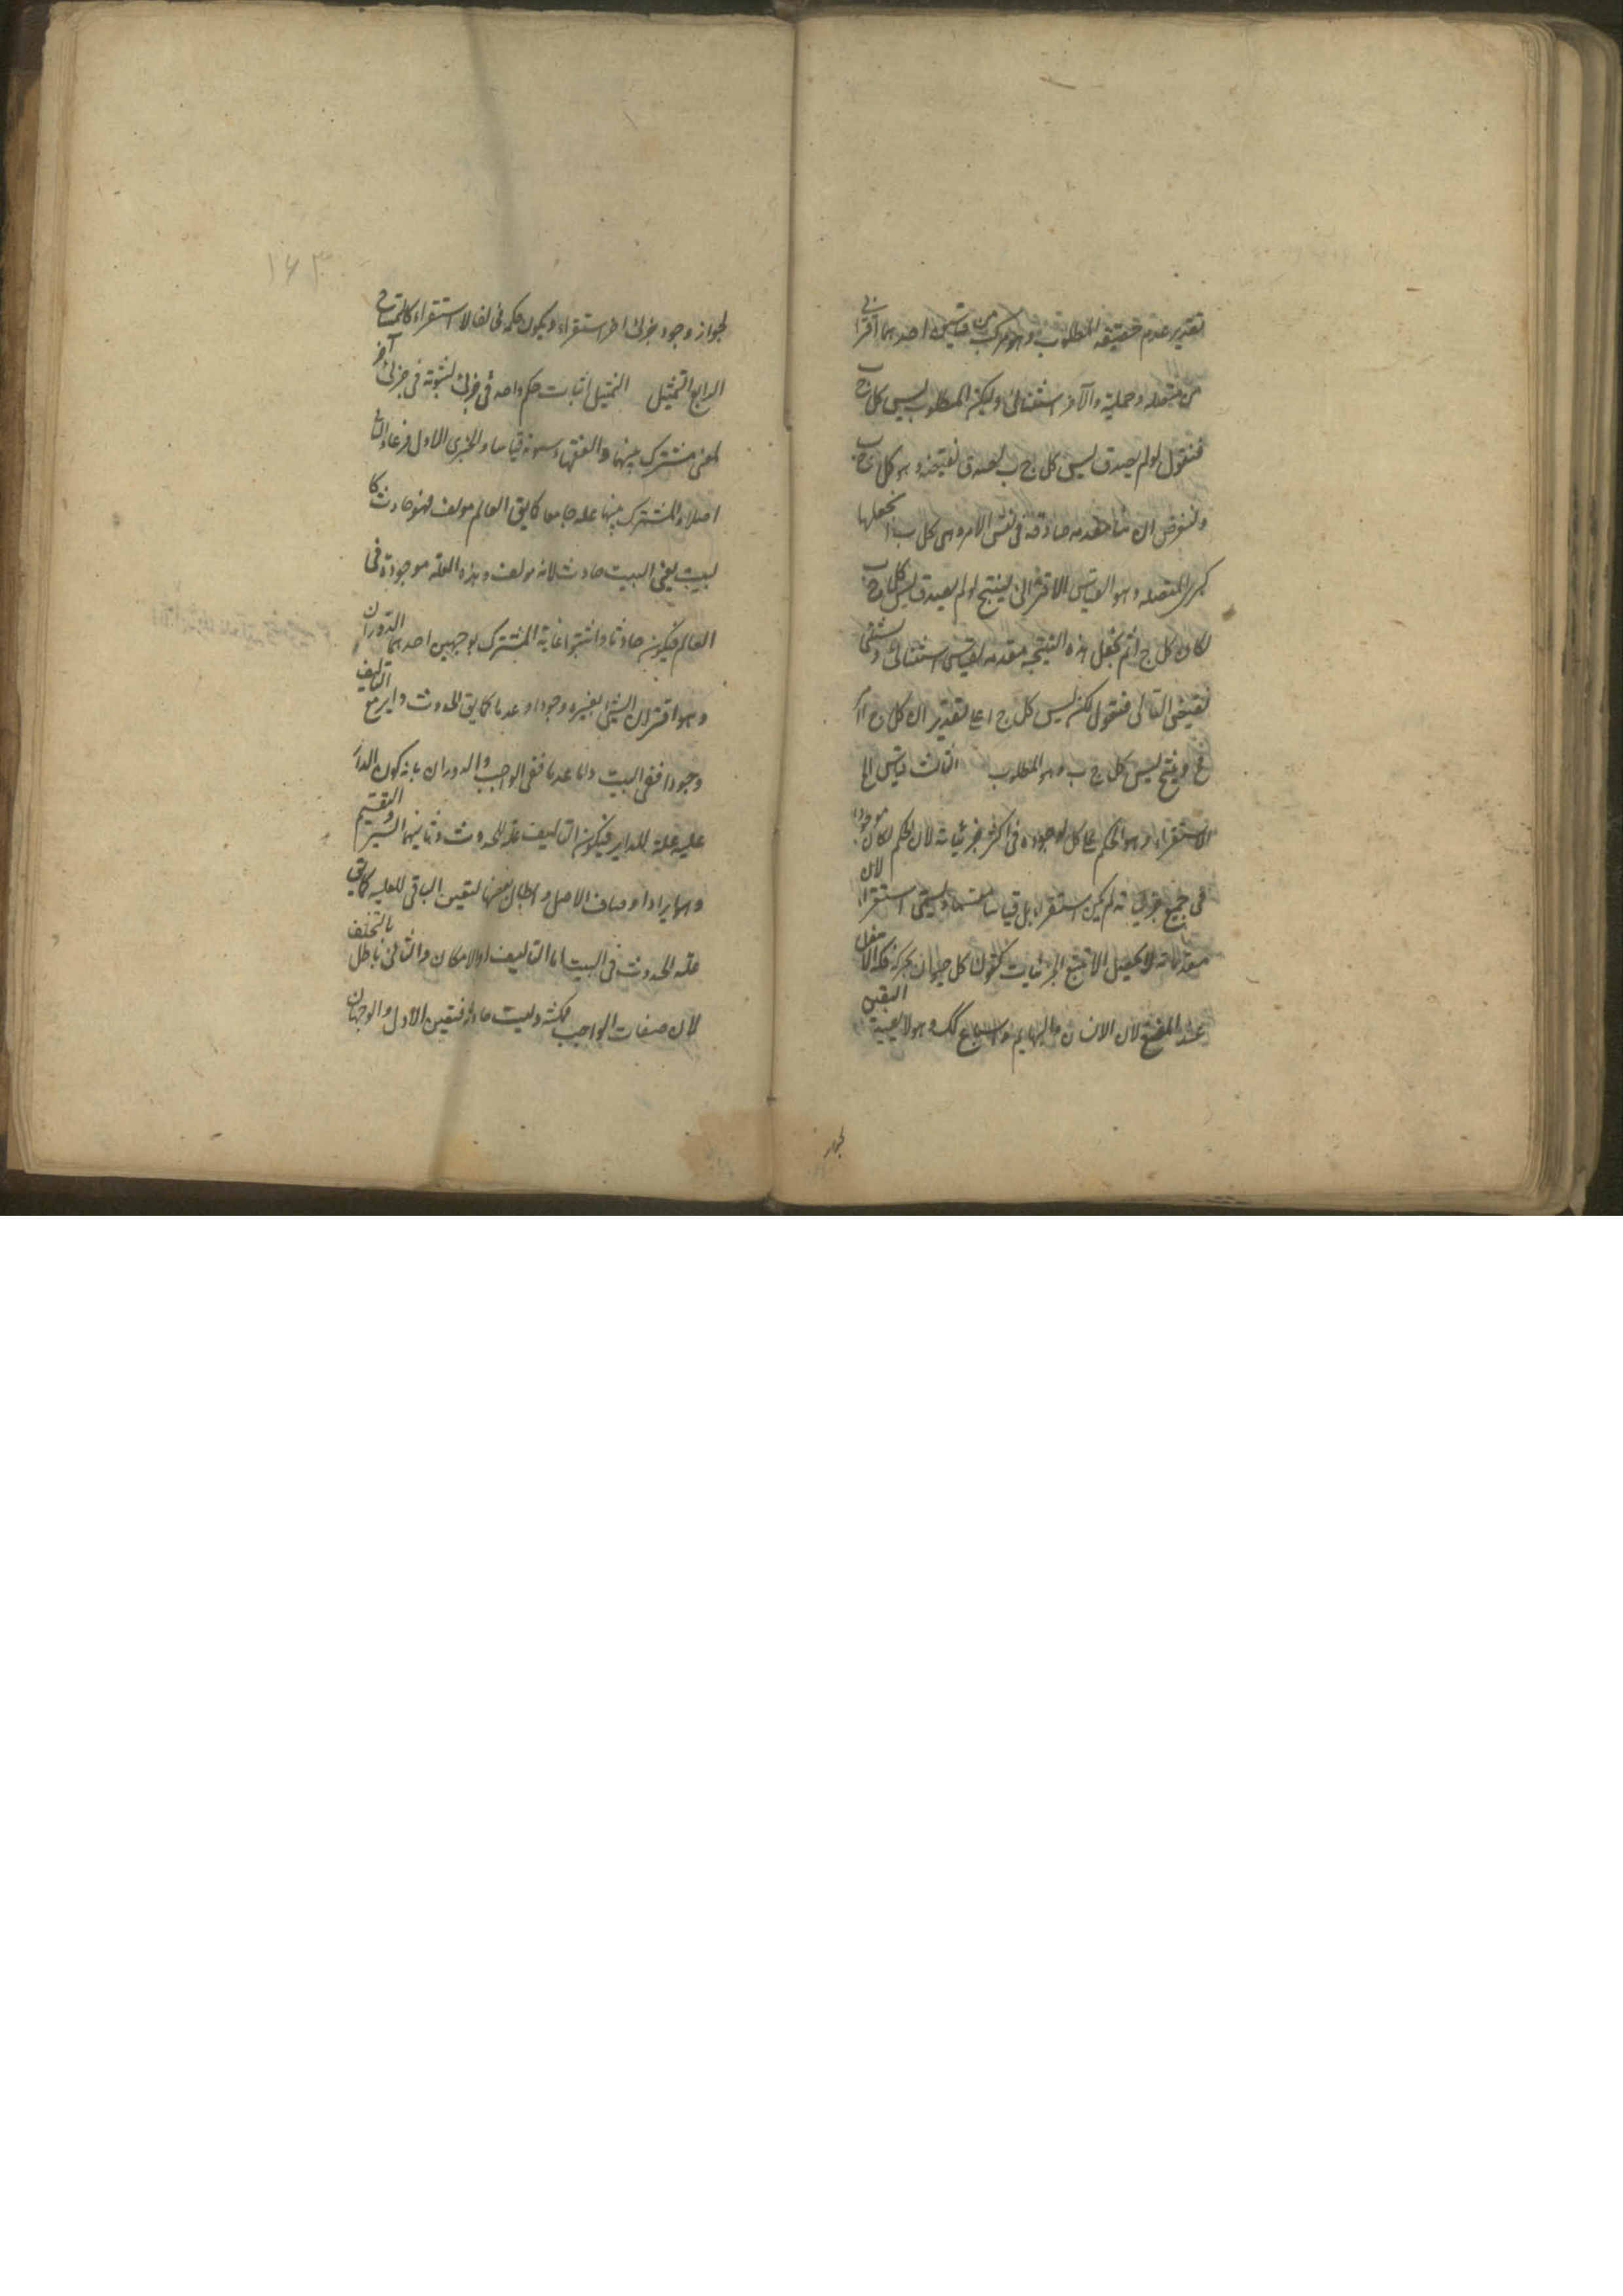 تقدير عدم حقيقة المطلوب وهو مركب من قياسين احدهما اقترانى
من متصلة وحملية والآخر استثنائى وليكن المطلوب ليس كل ج ب
فنقول لو لم يصدق ليس كل ج ب لصدق نقيضه وهو كل ج ب
ولنفرض ان هنا مقدمه صادقه فى نفس الامر وهى كل ب ا نجعلها
كبرى للمتصله وهو القياس الاقترانى لينتج لو لم يصدق ليس كل ج ب
لكان كل ج ا ثم نجعل هذه النتيجه مقدمه لقياس استثنائى ونستثنى
نقيض التالى فنقول لكن ليس كل ج ا على تقدير ان كل ج ا
فينتج ليس كل ج ب وهو المطلوب الثالث
الاستقراء وهو الحكم على كل لوجوده فى اكثر جزئياته لان الحكم لو كان موجودا
فى جميع جزئياته لم يكن استقراء بل قياسا مقسما ويسمى استقراء لان
مقدماته لا تحصل الا بتتبع الجزئيات كقولك كل حيوان يحرك فكه الاسفل
عند المضغ لان الانسان والبهايم والسباع كك وهو لا يفيد اليقين
لجواز
١٤٣
لجواز وجود جزئى اخر لم يستقرء ويكون حكمه مخالفا لما استقراء كالتمساح
الرابع التمثيل التمثيل اثبات حكم واحد فى جزئى لثبوته فى جزئى آخر
لمعنى مشترك بينهما والفقهاء يسمونه قياسا والجزئى الاول فرعا والثانى
اصلا والمشترك بينهما علة جامعا كما يق العالم مولف فهو حادث كا
لبيت يعنى البيت حادث لانه مولف وهذه العلة موجودة فى
العالم فيكون حادثا واثبتوا علية المشترك بوجهين احدهما الدوران
وهو اقتران الشىء بغيره وجودا وعدما كما يق الحدوث داير مع التاليف
وجودا ففى البيت واما عدما ففى الواجب والدوران بانه كون المدار
عليه علة للداير فيكون التاليف علة للحدوث وثانيهما السبر والتقسيم
وهو ايراد اوصاف الاصل وابطال بعضها لتعين الباقى للعليه كما يق
علة الحدوث فى البيت اما التاليف او الامكان والثانى باطل بالتخلف
لان صفات الواجب ممكنة وليست حادثة فتعين الاول والوجهان